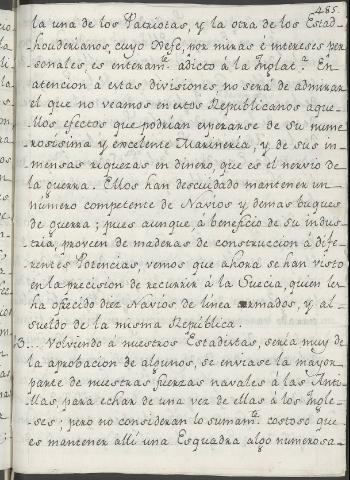 485.
la una de los Patriotas, y la otra de los Estad-
houderianos, cuyo Xefe, por miras é intereses per
sonales, es enteram.te adicto á la Inglat.a En
atencion á estas divisiones, no será de admirar
el que no veamos en estos Republicanos aque-
llos efectos que podrian esperarse de su nume
rosisima y excelente Marineria, y de sus in-
mensas riquezas en dinero, que es el nervio de
la guerra. Ellos han descuidado mantener un
número competente de Navios y demas buques
de guerra; pues aunque, á beneficio de su indus-
tria, proveen de maderas de construccion á dife-
rentes Potencias, vemos que ahora se han visto
en la precision de recurrir á la Suecia, quien les
ha ofrecido diez Navios de linea armados, y al
sueldo de la misma República.
3... Volviendo á nuestros Estadistas, sería muy de
la aprobacion de algunos, se enviase la mayor
parte de nuestras fuerzas navales á las Anti-
llas, para echar de una vez de ellas á los Ingle-
ses; pero no consideran lo sumam.te costoso que
es mantener allí una Esquadra algo numerosa-